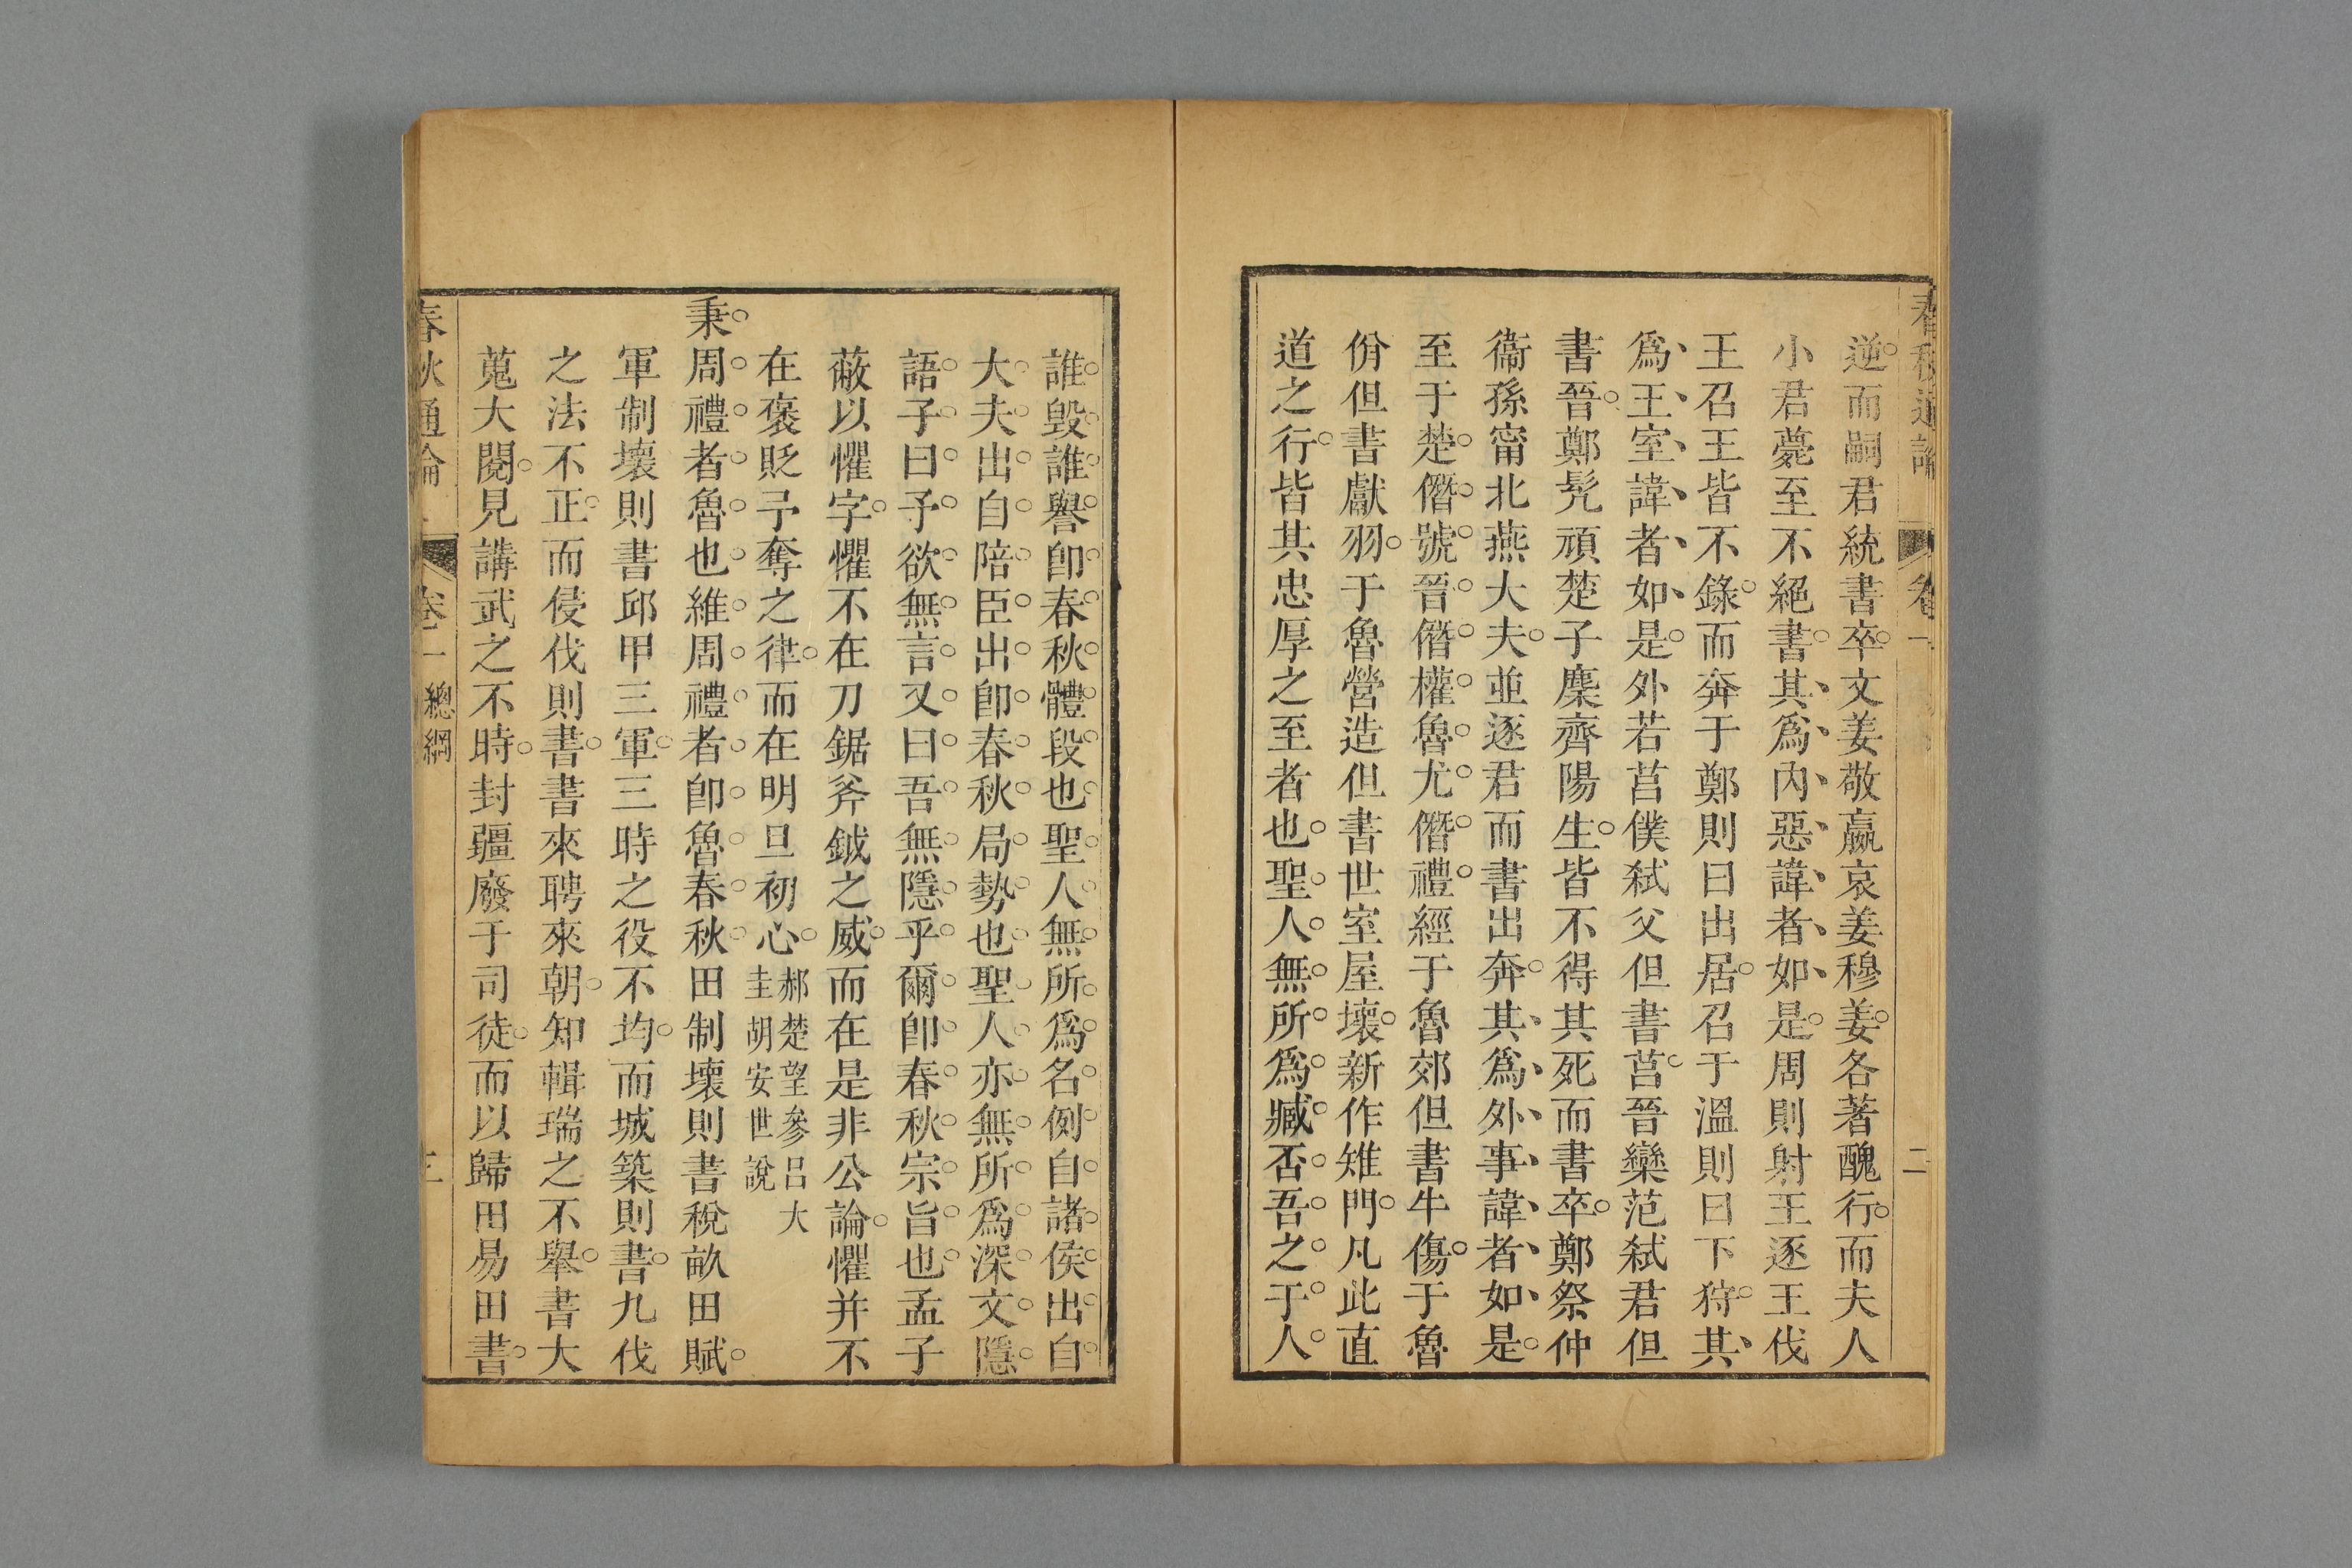 春秋通論 卷一 二
逆而嗣君統書卒文姜敬嬴哀姜穆姜各著醜行而夫人
小君薨至不絕書其爲內惡諱者如是周則射王逐王伐
王召王皆不錄而奔于鄭則曰出居召于溫則曰下狩其
爲王室諱者如是外若莒僕弒父但書莒晉欒范弒君但
書晉鄭髠頑楚子麇齊陽生皆不得其死而書卒鄭祭仲
衞孫甯北燕大夫並逐君而書出奔其爲外事諱者如是
至于楚僭號晉僭權魯尤僭禮經于魯郊但書牛傷于魯
佾但書獻羽于魯營造但書世室屋壞新作雉門凡此直
道之行皆其忠厚之至者也聖人無所爲臧否吾之于人
誰毀誰譽卽春秋體段也聖人無所爲名例自諸侯出自
大夫出自陪臣出卽春秋局勢也聖人亦無所爲深文隱
語子曰予欲無言又曰吾無隱乎爾卽春秋宗旨也孟子
蔽以懼字懼不在刀鋸斧鉞之威而在是非公論懼并不
在褒貶予奪之律而在明旦初心郝楚望參呂大
圭胡安世說
秉周禮者魯也維周禮者卽魯春秋田制壞則書稅畝田賦
軍制壞則書邱甲三軍三時之役不均而城築則書九伐
之法不正而侵伐則書書來聘來朝知輯瑞之不舉書大
蒐大閱見講武之不時封疆廢于司徒而以歸田易田書
春秋通論 卷一 總綱 三